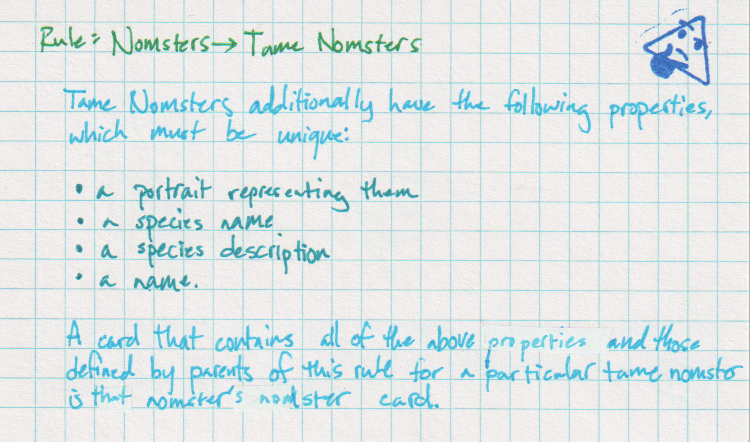 Rule: Nomsters → Tame Nomsters
Tame Nomsters additionally have the following properties,
which must be unique:
• a portrait representing them
• a species name
• a species description
• a name.
A card that contains all of the above properties and those
defined by parents of this rule for a particular tame nomster
is that nomster's nomster card.